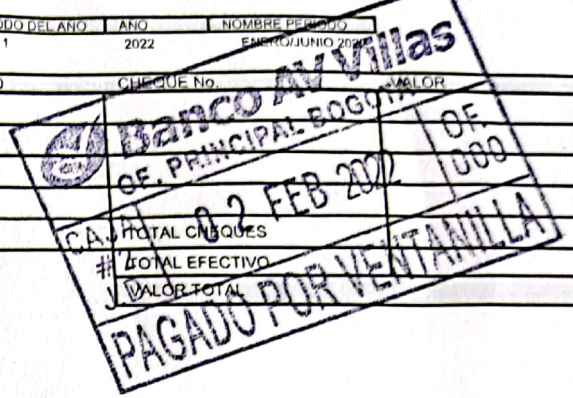 ODO DEL AÑO AÑO NOMBRE PERIODO
1 2022 ENERO/JUNIO 2022
CHEQUE No. VALOR
Banco AV Villas
OF. PRINCIPAL BOGOTA
02 FEB 2022
OF.
000
CAJA
#2
TOTAL CHEQUES
TOTAL EFECTIVO
VALOR TOTAL
PAGADO POR VENTANILLA